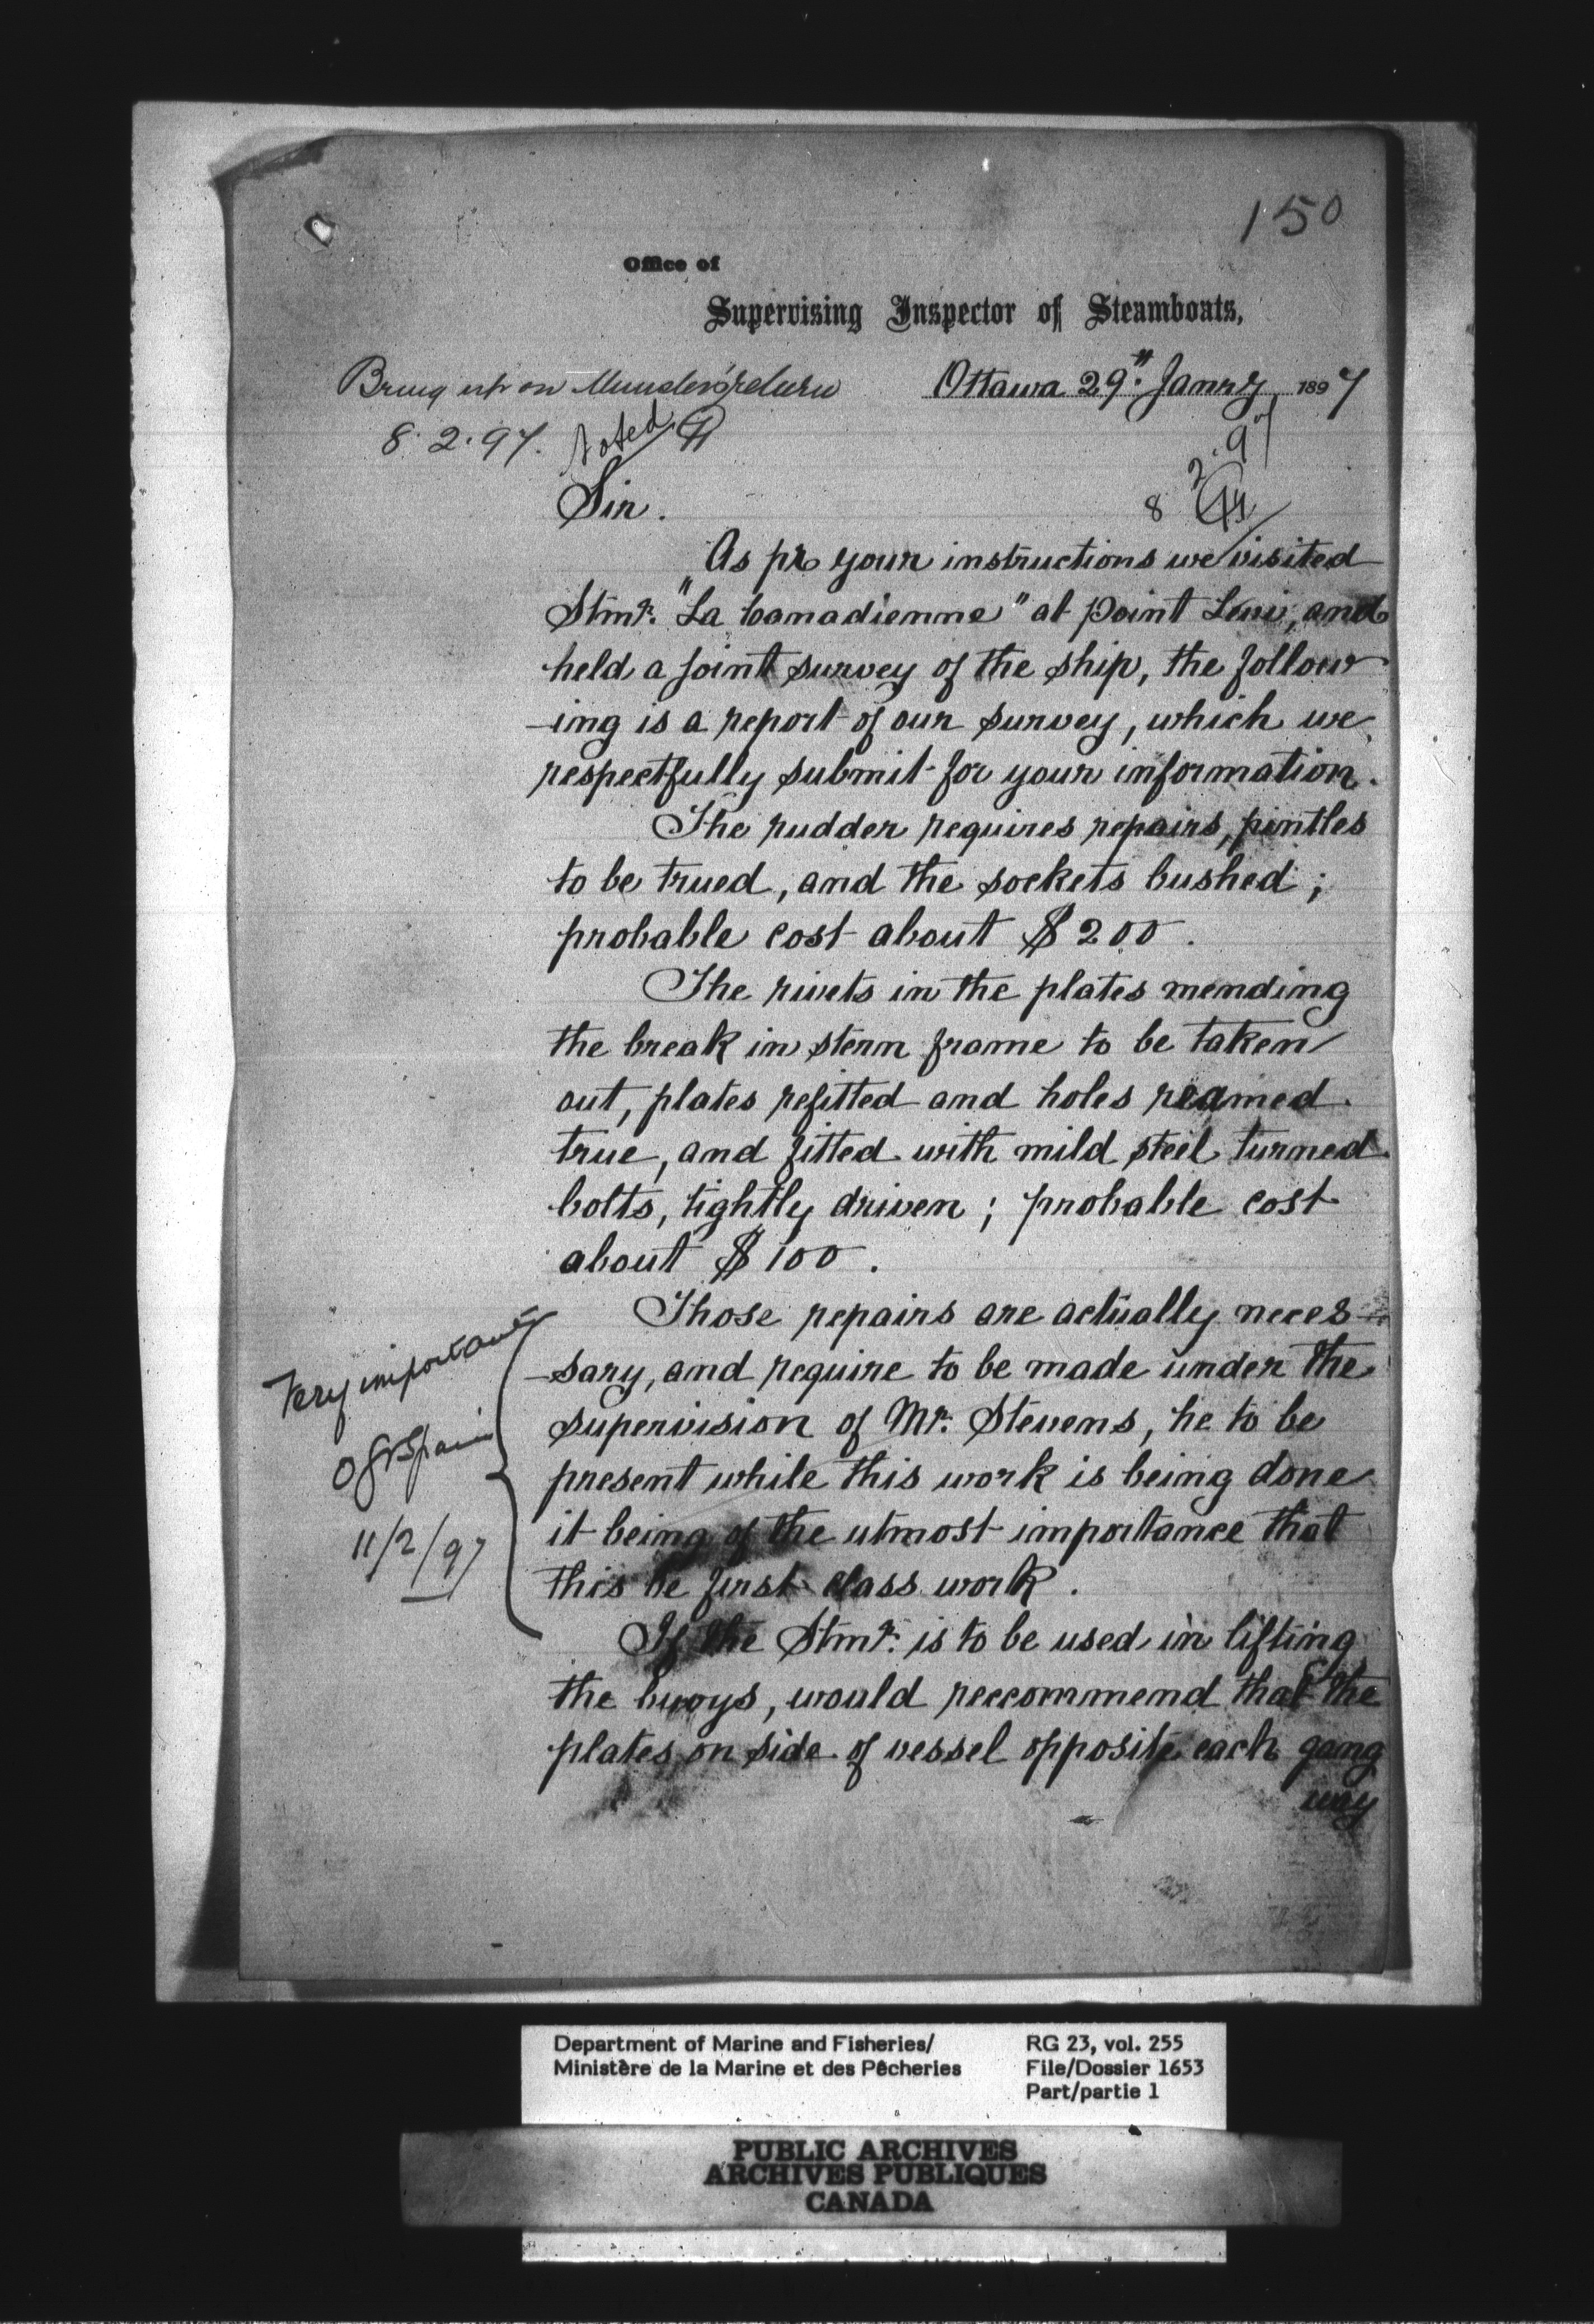 150
Office of
Supervising Inspector of Steamboats,
Bring up on Minister's return
Ottawa 29th Janry 1897
8.2.97. Noted
8 2.97
Sir.
As pr your instructions we visited
Stmr. "La Canadienne" at Point Levi, and
held a joint survey of the ship, the follow
-ing is a report of our survey, which we
respectfully submit for your information.
The rudder requires repairs, pintles
to be trued, and the sockets bushed;
probable cost about $200.
The rivets in the plates mending
the break in stern frame to be taken
out, plates refitted and holes reamed
true, and fitted with mild steel turned
bolts, tightly driven; probable cost
about $100.
Those repairs are actually neces-
-sary, and require to be made under the
supervision of Mr. Stevens, he to be
present while this work is being done
it being of the utmost importance that
this be first class work.
Very important
OGVSpain
11/2/97
If the Stmr. is to be used in lifting
the buoys, would reccommend that the
plates on side of vessel opposite each gang
way
Department of Marine and Fisheries/
Ministère de la Marine et des Pêcheries
RG 23, vol. 255
File/Dossier 1653
Part/partie 1
PUBLIC ARCHIVES
ARCHIVES PUBLIQUES
CANADA